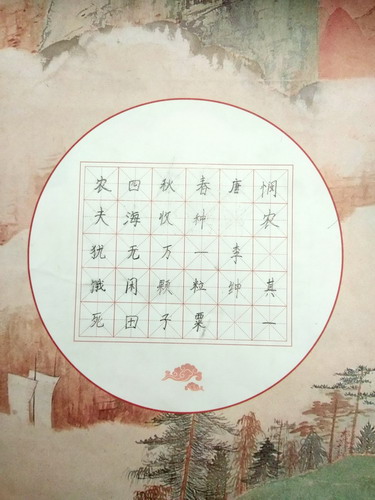 悯农 其一
唐 李绅
春种一粒粟
秋收万颗子
四海无闲田
农夫犹饿死